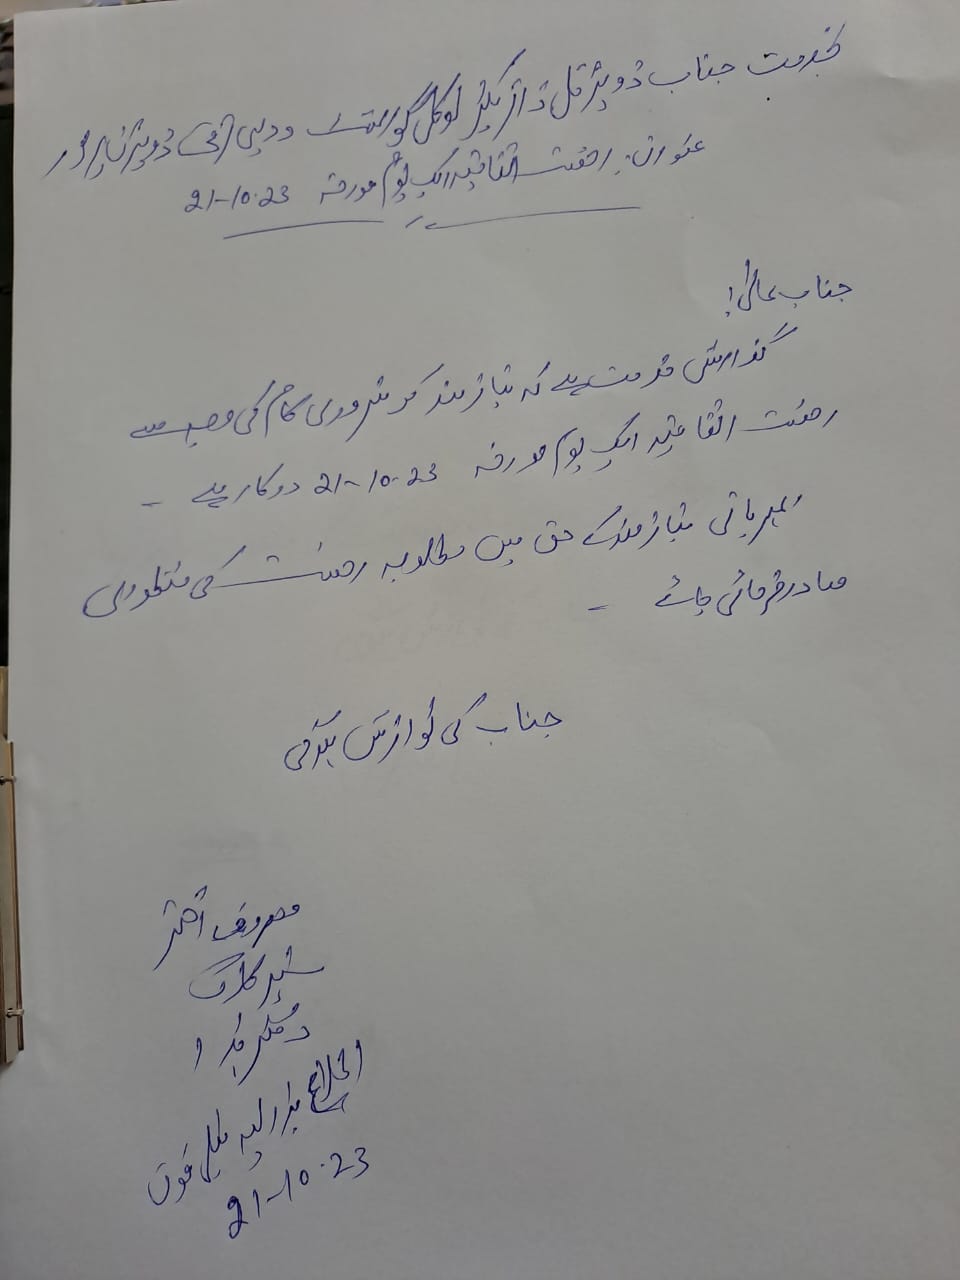 بخدمت جناب ڈویژنل ڈائریکٹر لوکل گورنمنٹ و دیہی ترقی ڈویژن
عنوان: رخصت اتفاقیہ ایک یوم مورخہ 21-10-23
جناب عالی!
گذارش خدمت ہے کہ نیازمند کو ضروری کام کی وجہ سے
رخصت اتفاقیہ ایک یوم مورخہ 21-10-23 درکار ہے -
بمہربانی نیازمند کے حق میں مطلوبہ رخصت کی منظوری
صادر فرمائی جائے -
جناب کی نوازش ہوگی
معروف اختر
سنیئر کلرک
دفتر ہذا
اطلاع بذریعہ ٹیلی فون
21-10-23